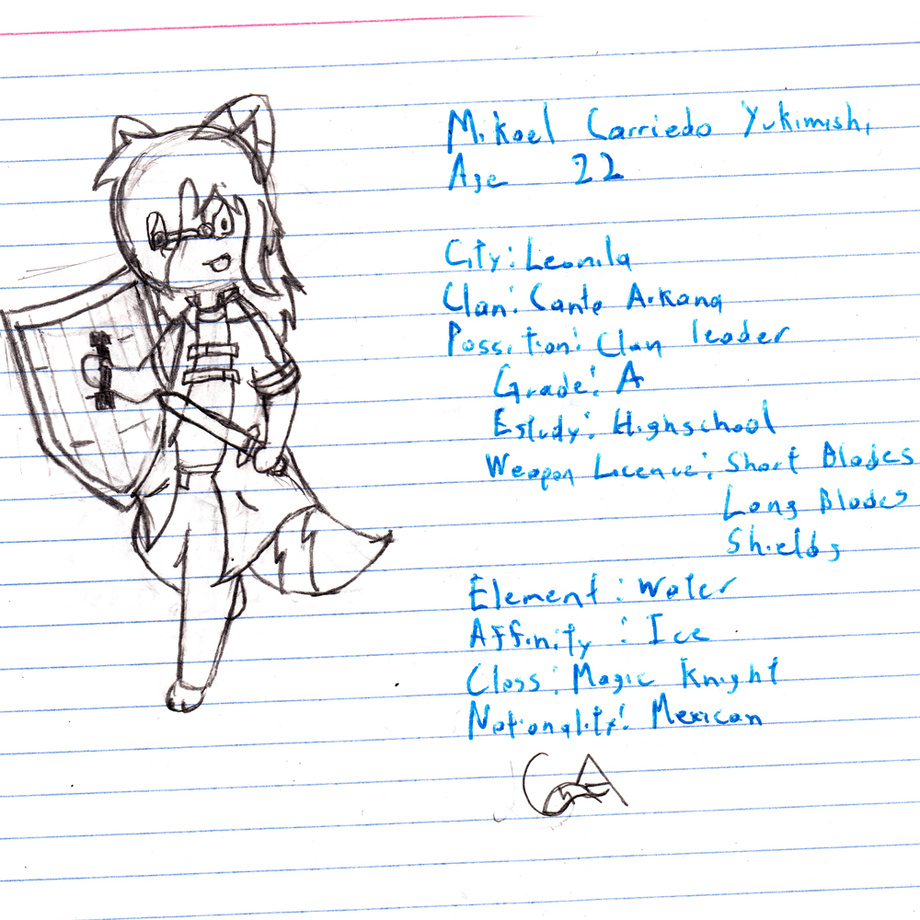 Mikael Carriedo Yukimishi
Age 22
City: Leonila
Clan: Canto Arkana
Possition: Clan leader
Grade: A
Estudy: Highschool
Weapon Licence: Short Blades
Long Blades
Shields
Element: Water
Affinity: Ice
Class: Magic Knight
Nationality: Mexican